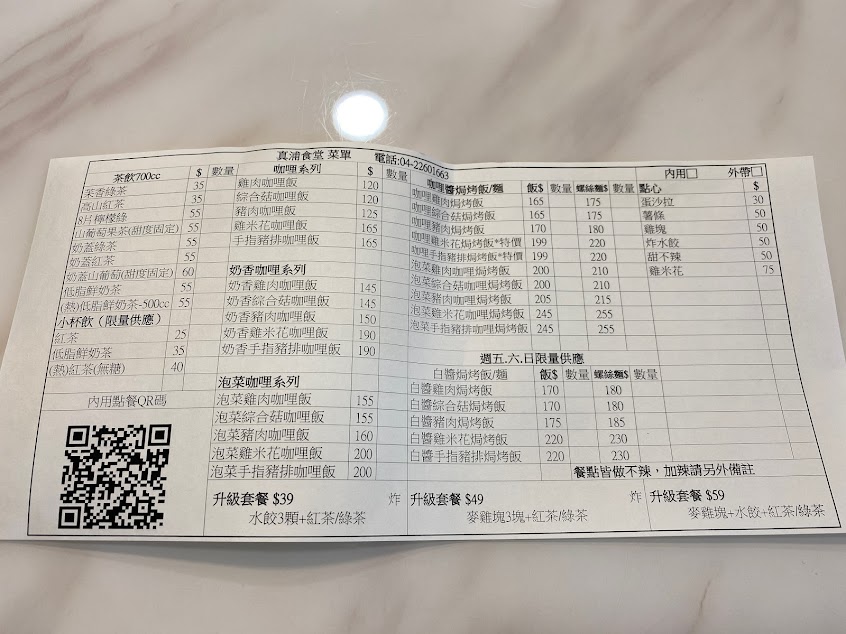 真浦食堂 菜單 電話:04-22601663
內用□ 外帶□
茶飲700cc $ 數量
茉香綠茶 35
高山紅茶 35
8片檸檬綠 55
山葡萄果茶(甜度固定) 55
奶蓋綠茶 55
奶蓋紅茶 55
奶蓋山葡萄(甜度固定) 60
低脂鮮奶茶 55
(熱)低脂鮮奶茶-500cc 55
小杯飲（限量供應）
紅茶 25
低脂鮮奶茶 35
(熱)紅茶(無糖) 40
內用點餐QR碼
咖哩系列 $ 數量
雞肉咖哩飯 120
綜合菇咖哩飯 120
豬肉咖哩飯 125
雞米花咖哩飯 165
手指豬排咖哩飯 165
奶香咖哩系列
奶香雞肉咖哩飯 145
奶香綜合菇咖哩飯 145
奶香豬肉咖哩飯 150
奶香雞米花咖哩飯 190
奶香手指豬排咖哩飯 190
泡菜咖哩系列
泡菜雞肉咖哩飯 155
泡菜綜合菇咖哩飯 155
泡菜豬肉咖哩飯 160
泡菜雞米花咖哩飯 200
泡菜手指豬排咖哩飯 200
咖哩醬焗烤飯/麵 飯$ 數量 螺絲麵$ 數量
咖哩雞肉焗烤飯 165 175
咖哩綜合菇焗烤飯 165 175
咖哩豬肉焗烤飯 170 180
咖哩雞米花焗烤飯*特價 199 220
咖哩手指豬排焗烤飯*特價 199 220
泡菜雞肉咖哩焗烤飯 200 210
泡菜綜合菇咖哩焗烤飯 200 210
泡菜豬肉咖哩焗烤飯 205 215
泡菜雞米花咖哩焗烤飯 245 255
泡菜手指豬排咖哩焗烤飯 245 255
週五.六.日限量供應
白醬焗烤飯/麵 飯$ 數量 螺絲麵$ 數量
白醬雞肉焗烤飯 170 180
白醬綜合菇焗烤飯 170 180
白醬豬肉焗烤飯 175 185
白醬雞米花焗烤飯 220 230
白醬手指豬排焗烤飯 220 230
點心 $
蛋沙拉 30
薯條 50
雞塊 50
炸水餃 50
甜不辣 50
雞米花 75
餐點皆做不辣，加辣請另外備註
升級套餐 $39 炸
水餃3顆+紅茶/綠茶
升級套餐 $49 炸
麥雞塊3塊+紅茶/綠茶
升級套餐 $59
麥雞塊+水餃+紅茶/綠茶